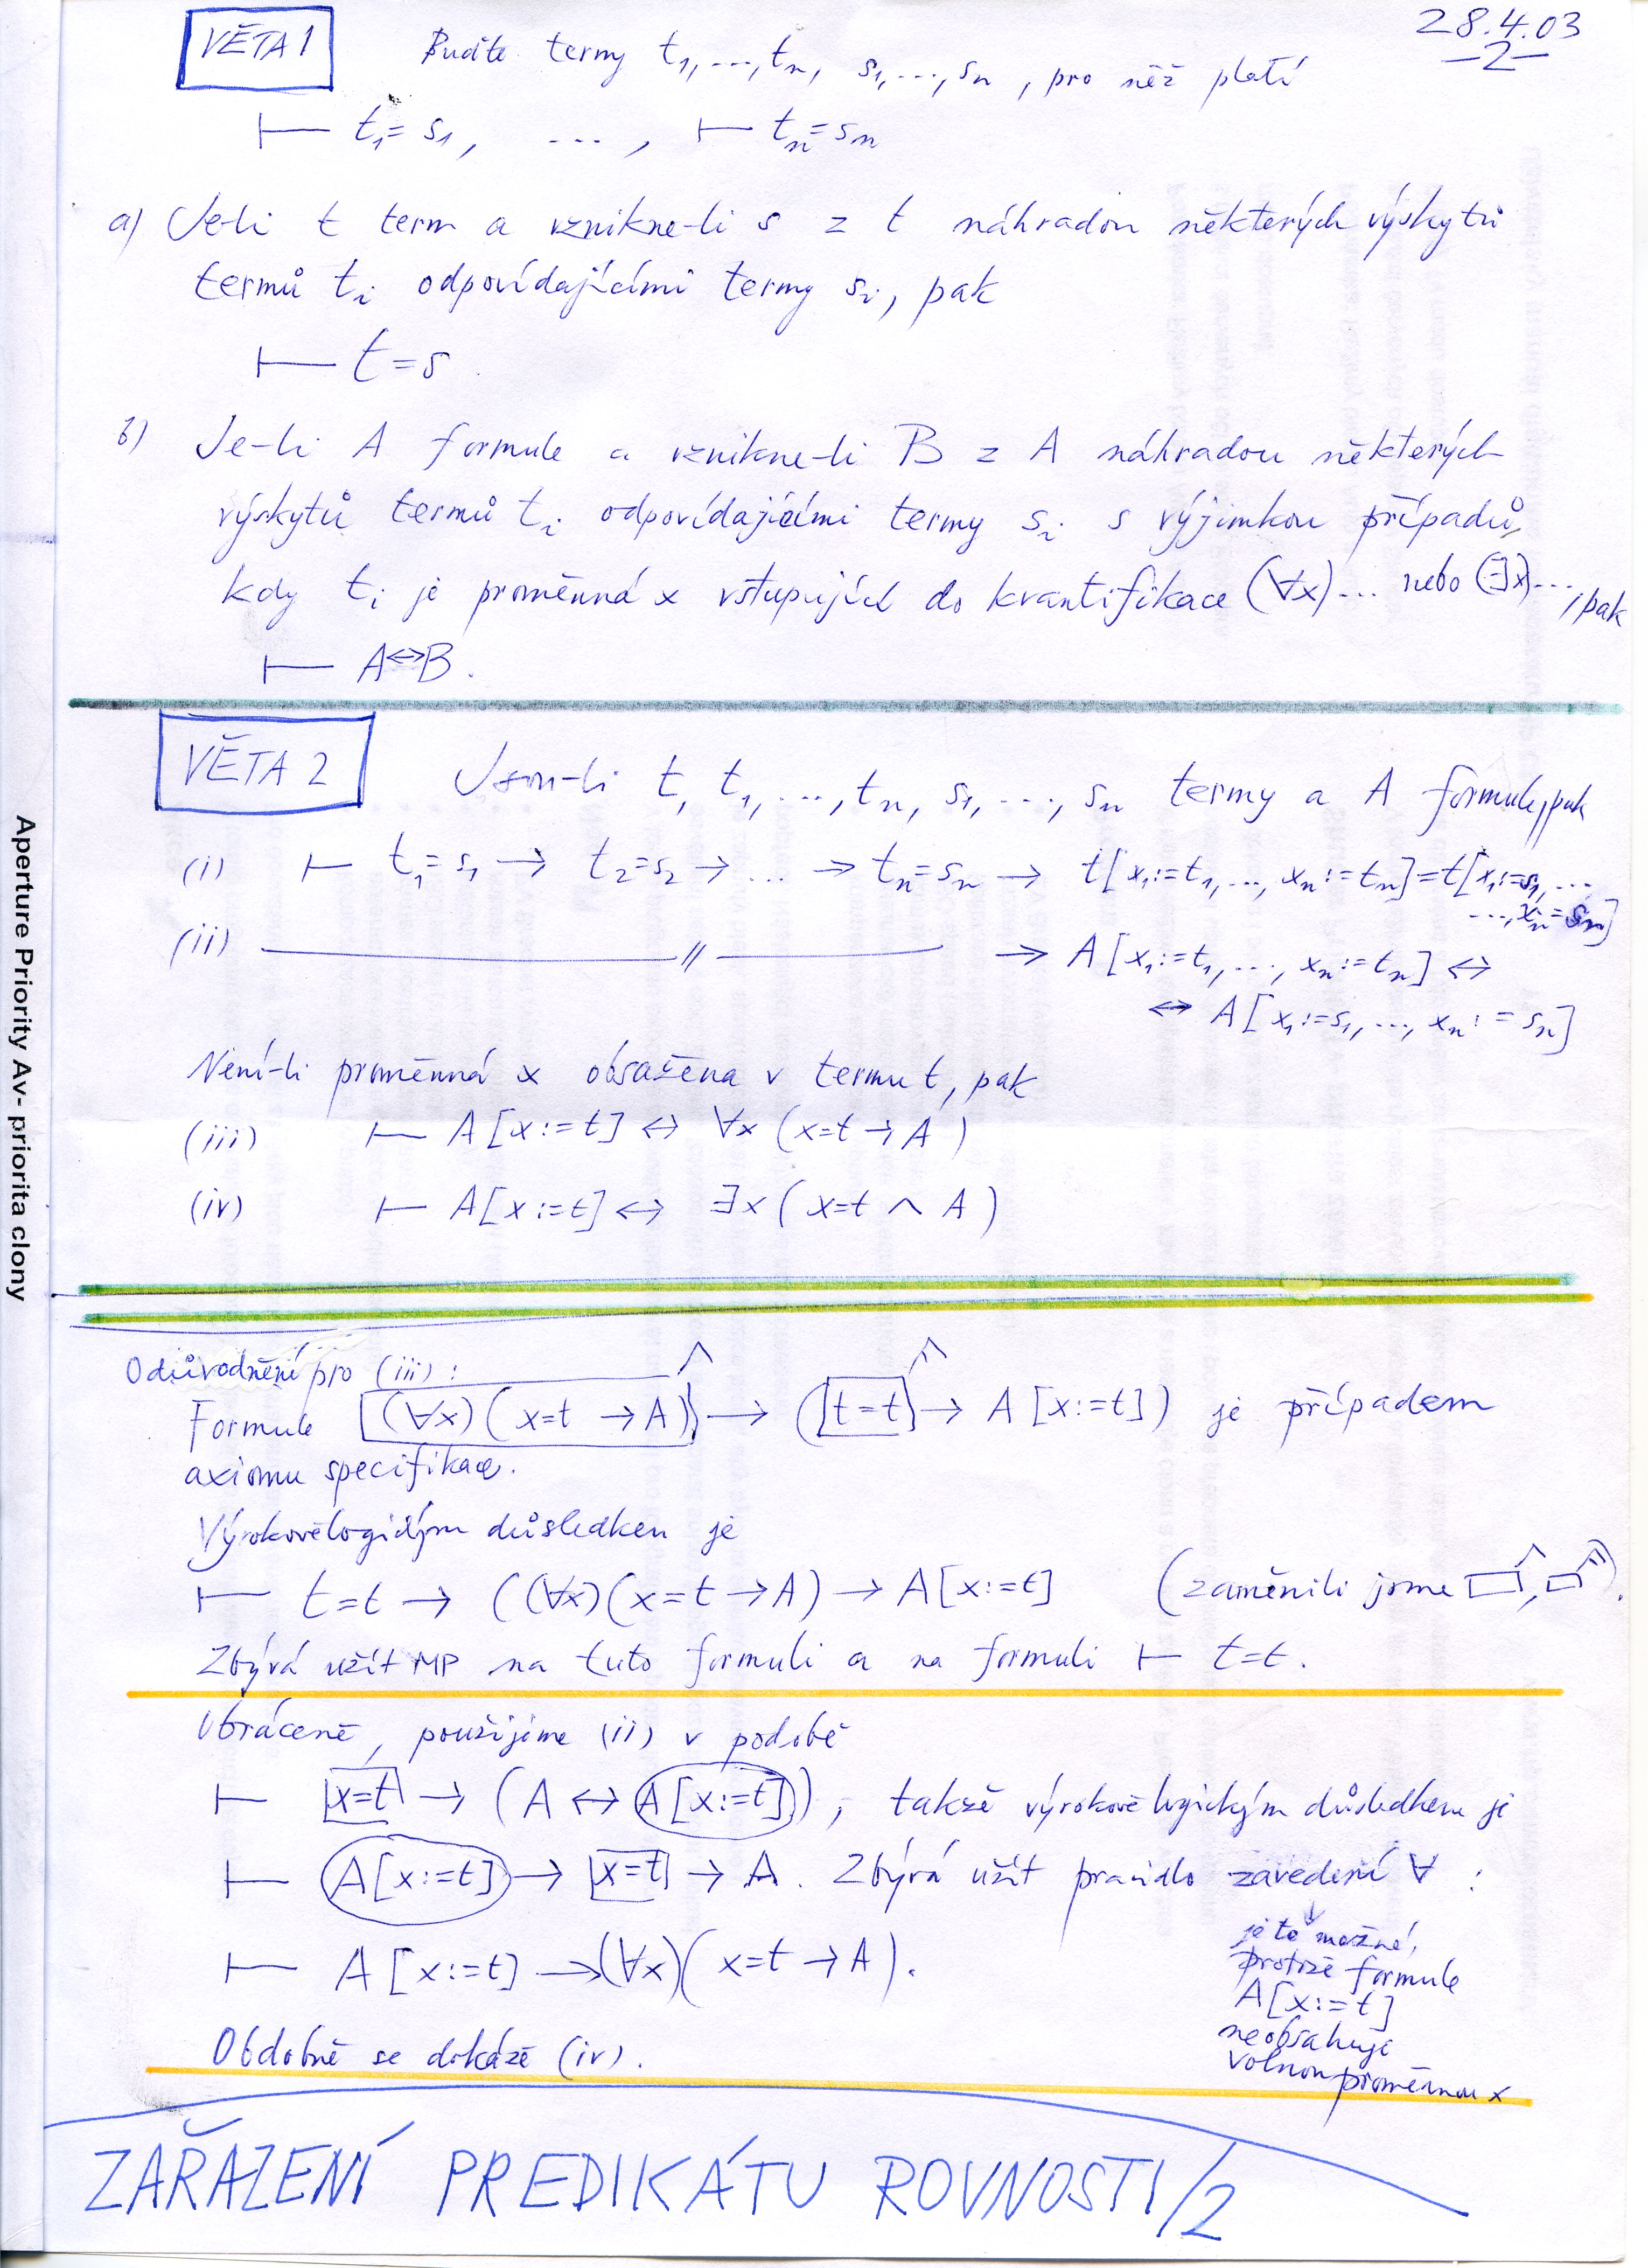 28.4.03
-2-
VĚTA 1 Buďte termy t₁, ..., tₙ, s₁, ..., sₙ, pro něž platí
⊢ t₁ = s₁, ..., ⊢ tₙ = sₙ
a) Je-li t term a vznikne-li s z t náhradou některých výskytů
termů tᵢ odpovídajícími termy sᵢ, pak
⊢ t = s.
b) Je-li A formule a vznikne-li B z A náhradou některých
výskytů termů tᵢ odpovídajícími termy sᵢ s výjimkou případů,
kdy tᵢ je proměnná x vstupující do kvantifikace (∀x)... nebo (∃x)..., pak
⊢ A ↔ B.
VĚTA 2 Jsou-li t, t₁, ..., tₙ, s₁, ..., sₙ termy a A formule, pak
(i) ⊢ t₁ = s₁ → t₂ = s₂ → ... → tₙ = sₙ → t[x₁:=t₁, ..., xₙ:=tₙ] = t[x₁:=s₁, ...
..., xₙ:=sₙ]
(ii) —— // —— → A[x₁:=t₁, ..., xₙ:=tₙ] ↔
↔ A[x₁:=s₁, ..., xₙ:=sₙ]
Není-li proměnná x obsažena v termu t, pak
(iii) ⊢ A[x:=t] ↔ ∀x (x=t → A)
(iv) ⊢ A[x:=t] ↔ ∃x (x=t ∧ A)
Odůvodnění pro (iii):
Formule (∀x)(x=t → A) → (t=t → A[x:=t]) je případem
axiomu specifikace.
Výrokovělogickým důsledkem je
⊢ t=t → ((∀x)(x=t → A) → A[x:=t] (zaměnili jsme □, □).
Zbývá užít MP na tuto formuli a na formuli ⊢ t=t.
Obráceně, použijeme (ii) v podobě
⊢ x=t → (A ↔ A[x:=t]), takže výrokově logickým důsledkem je
⊢ A[x:=t] → x=t → A. Zbývá užít pravidlo zavedení ∀ :
je to možné,
protože formule
A[x:=t]
neobsahuje
volnou proměnnou x
⊢ A[x:=t] → (∀x)(x=t → A).
Obdobně se dokáže (iv).
ZAŘAZENÍ PREDIKÁTU ROVNOSTI/2
Aperture Priority Av- priorita clony